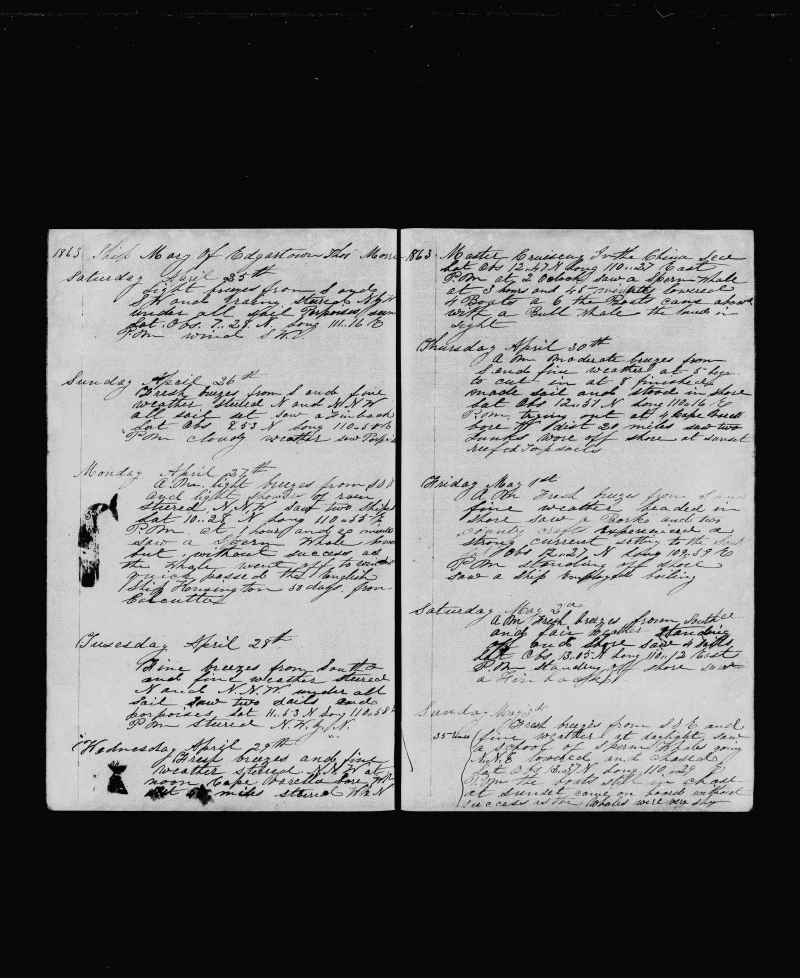 1863 Ship Mary Of Edgartown Thos Morri
Saturday April 25th
Light brezes from S and
S W and Grainy steered N by W
under all sail Porpoises seen
Lat. Obs. 7..29 N. Long 111.16 E
P.M wind S.W.
Sunday April 26th
Fresh brezes from S and fine
weather steered N and N.N.W
all sail set saw a Finback
Lat Obs 8.53 N Long 110.58 E
P.M cloudy weather saw Porpois
Monday April 27th
A.M. light breezes from S S E
and light showers of rain
steered N.N.W saw two ships
Lat 10..28 N Long 110.55 E
P.M at 1 hour and 20 minute
saw a Sperm Whale
but without success as
the Whale went off to
quick passed the English
Ship Kensington 30 days from
Calcutta
Tuesday April 28th
Fine brezes from South
and fine weather steered
N and N.N.W under all
sail saw two sails and
porpoises Lat 11.53 N Long 110.58 E
P M steured N.W.by N.
Wednesday April 29th
Fresh brezes and fine
weather steered N.N.W at
noon Cape Varella bore
miles steered N
1863 Master Cruiseing In the China Sea
Lat Obs 12..47 N Long 110..27 East
P.M at 2 Oclock saw a Sperm Whale
at 3 hours and 45 minutes lowered
4 Boats a 6 the Boats came aboard
with a Bull Whale the land in
sight
Thursday April 30th
A M moderate brezes from
S and fine weather at 5 began
to cut in at 8 finished
made sail and stood in shore
Lat Obs 12..37 N Long 110.16 E
P.M trying out at 4 Cape
bore W dist 20 miles saw two
Junks wore off shore at sunset
reefed Topsails
Friday May 1st
A M Fresh brezes from S and
fine weather headed in
shore saw a Bark and two
country craft experienced a
strong current setting to the
Lat Obs 12..27 N Long 109.59 E
P M standing off shore
saw a ship employed boiling
Saturday May 2d
A M Fresh brezes from South
and fair weather standing
off and shore saw 4 sails
Lat Obs 13.05 N Long 110.12 East
P M standing off shore saw
a Finback
Sunday May 3d
Fresh brezes from S S E and
fine weather at daylight saw
a school of Sperm Whales going
N.N.E lowered and chased
Lat Obs Long 110.29 E
P.M the boats still in chase
at sunset came on board without
success as the Whales were very shy